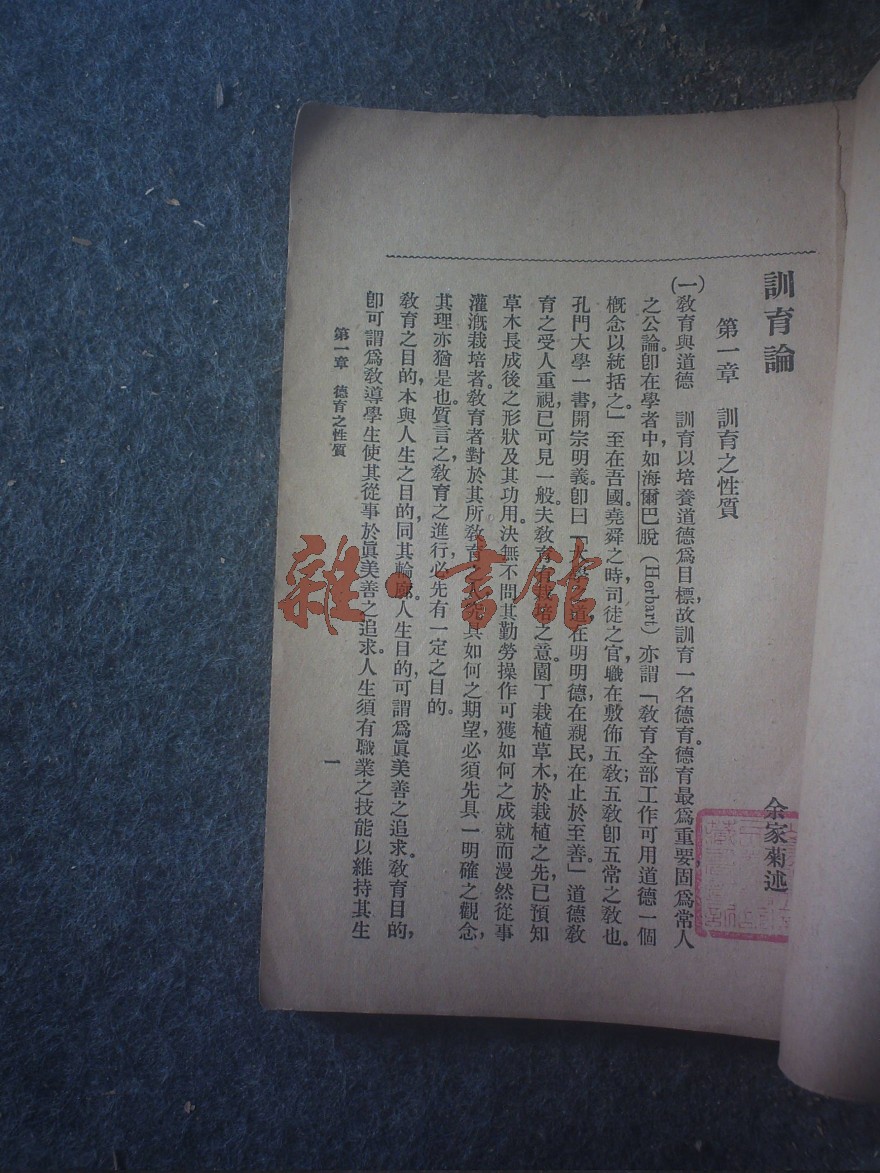 訓育論
余家菊述
第一章　訓育之性質
(一)教育與道德　訓育以培養道德爲目標，故訓育一名德育。德育最爲重要，固爲常人
之公論。卽在學者中，如海爾巴脫（Herbart）亦謂「教育全部工作可用道德一個
槪念以統括之。」至在吾國，堯舜之時，司徒之官，職在敷佈五教；五教卽五常之教也。
孔門大學一書，開宗明義。卽曰「大學之道，在明明德，在親民，在止於至善。」道德教
育之受人重視，已可見一般。夫教育有栽培之意。園丁栽植草木，於栽植之先，已預知
草木長成後之形狀及其功用。決無不問其勤勞操作可獲如何之成就而漫然從事
灌漑栽培者。教育者對於其所教育之人先具如何之期望，必須先具一明確之觀念，
其理亦猶是也。質言之，教育之進行，必先有一定之目的。
教育之目的，本與人生之目的，同其輪廓。人生目的，可謂爲眞美善之追求。教育目的，
卽可謂爲教導學生使其從事於眞美善之追求。人生須有職業之技能以維持其生
第一章　德育之性質
一
雜·書館